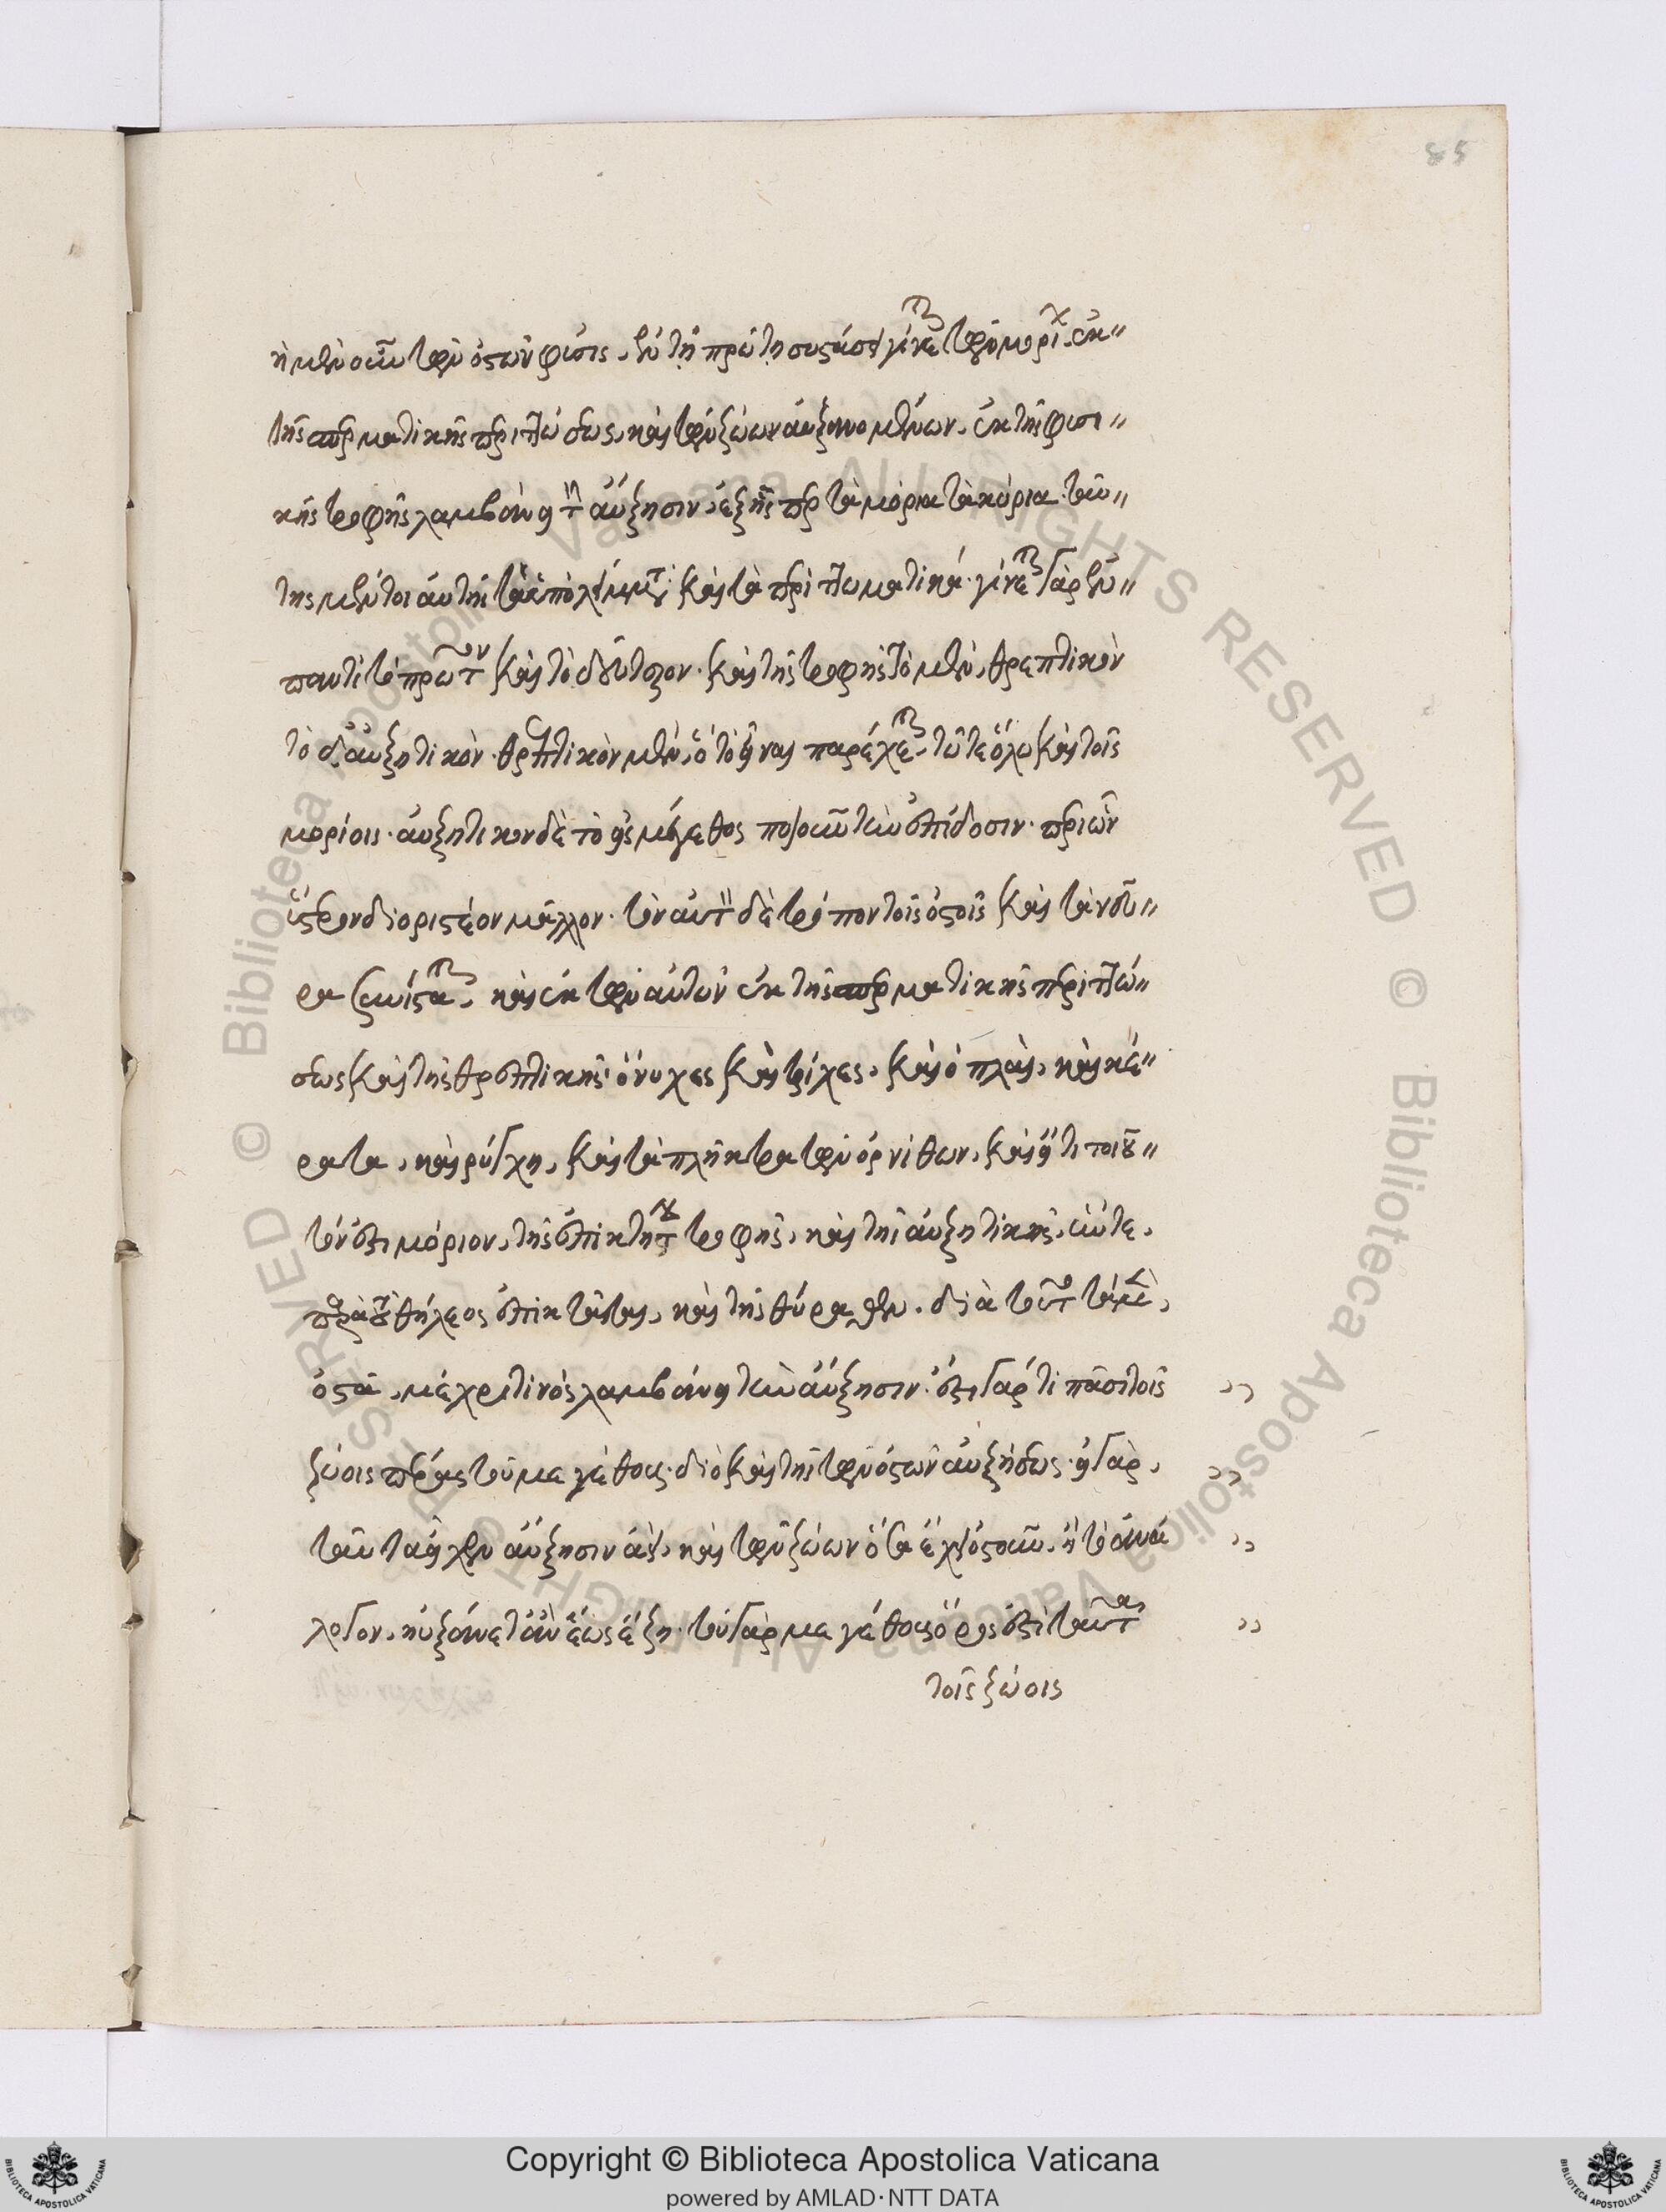 85
ἡ μὲν οὖν τῶν ὀστῶν φύσις, ἐν τῇ πρώτῃ συστάσει γίνεται τῶν μορίων ἐκ
τῆς σπερματικῆς περιττώσεως, καὶ τῶν ζώων αὐξανομένων, ἐκ τῆς φυσι
κῆς τροφῆς λαμβάνει τὴν αὔξησιν, ἐξ ἧσπερ τὰ μόρια τὰ κύρια. ταύ
της μέντοι αὐτῆς τὰ ὑπολείμματα καὶ τὰ περιττωματικά. γίνεται γὰρ ἐν
παντὶ τὸ πρῶτον καὶ τὸ δεύτερον. καὶ τῆς τροφῆς τὸ μὲν, θρεπτικὸν
τὸ δ' αὐξητικόν. θρεπτικὸν μὲν, ὃ τὸ εἶναι παρέχεται, τῷ τε ὅλῳ καὶ τοῖς
μορίοις. αὐξητικὸν δὲ τὸ εἰς μέγεθος ποιοῦν τὴν ἐπίδοσιν. περὶ ὧν
ὕστερον διοριστέον μᾶλλον. τὸν αὐτὸν δὲ τρόπον τοῖς ὀστοῖς καὶ τὰ νεῦ
ρα συνίσταται, καὶ ἐκ τῶν αὐτῶν ἐκ τῆς σπερματικῆς περιττώ
σεως καὶ τῆς θρεπτικῆς. ὄνυχες καὶ τρίχες, καὶ ὁπλαὶ, καὶ κέ
ρατα, καὶ ῥύγχη, καὶ τὰ πλῆκτρα τῶν ὀρνίθων, καὶ εἴ τι τοιοῦ
τόν ἐστι μόριον, τῆς ἐπικτήτου τροφῆς, καὶ τῆς αὐξητικῆς, ἥν τε,
παρὰ τοῦ θήλεος ἐπικτᾶται, καὶ τῆς θύραθεν. διὰ τοῦτο τὰ μὲν,
ὀστᾶ, μέχρι τινὸς λαμβάνει τὴν αὔξησιν. ἔστι γάρ τι πᾶσι τοῖς
ζώοις πέρας τοῦ μεγέθους. διὸ καὶ τῆς τῶν ὀστῶν αὐξήσεως. εἰ γὰρ,
ταῦτα εἶχεν αὔξησιν ἀεὶ, καὶ τῶν ζώων ὅσα ἔχει ὀστοῦν, ἢ τὸ ἀνά
λογον, ηὐξάνετ' ἂν ἕως ἔζη. τοῦ γὰρ μεγέθους ὅρος ἐστὶ ταῦτα
τοῖς ζώοις
© Biblioteca Apostolica Vaticana ALL RIGHTS RESERVED © Biblioteca Apostolica Vaticana ALL RIGHTS RESERVED
Copyright © Biblioteca Apostolica Vaticana
powered by AMLAD·NTT DATA
BIBLIOTECA APOSTOLICA VATICANA
BIBLIOTECA APOSTOLICA VATICANA